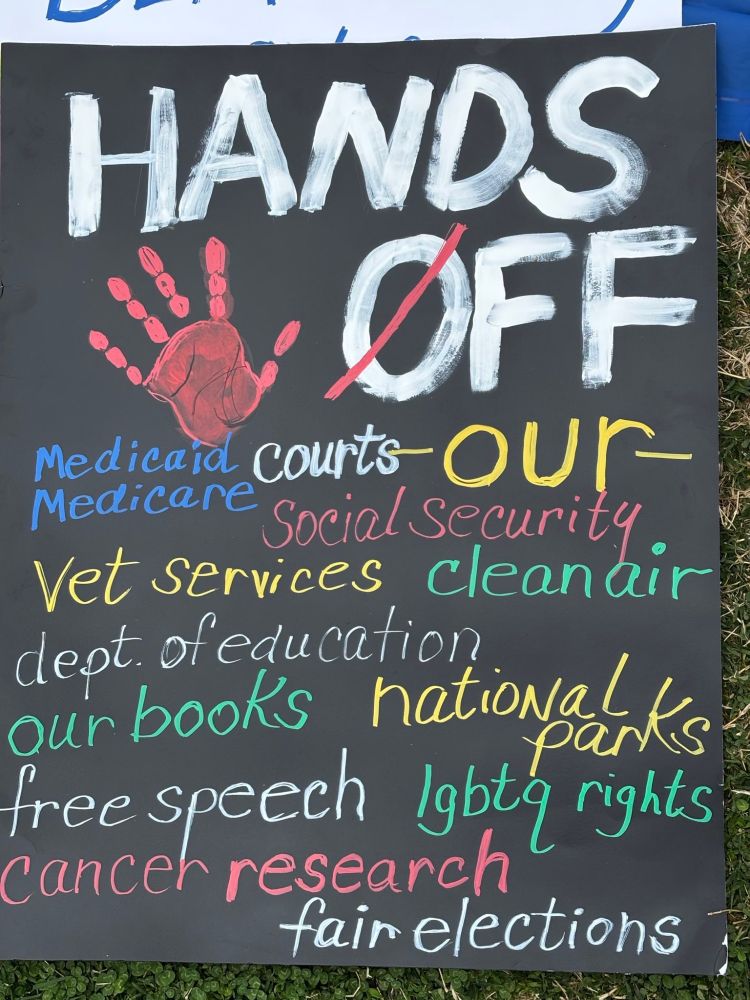 HANDS
OFF
our
Medicaid courts
Medicare
Social Security
Vet services clean air
dept. of education
our books national parks
free speech lgbtq rights
cancer research
fair elections